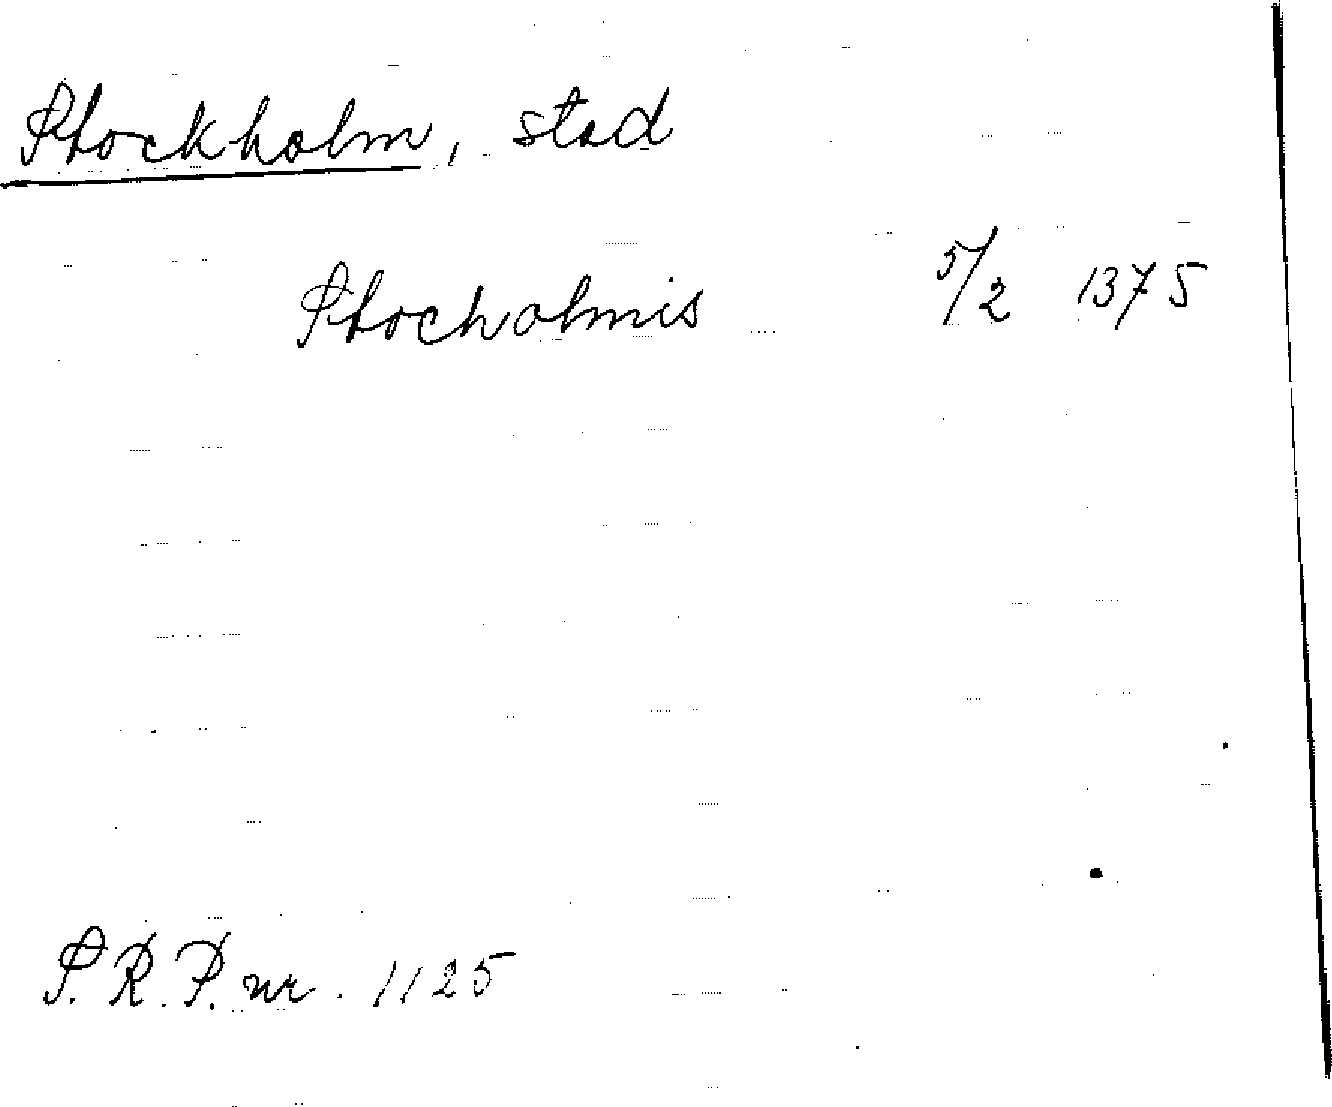 Stockholm, stad
Stocholmis 5/2 1375
S.R.P. nr. 1125